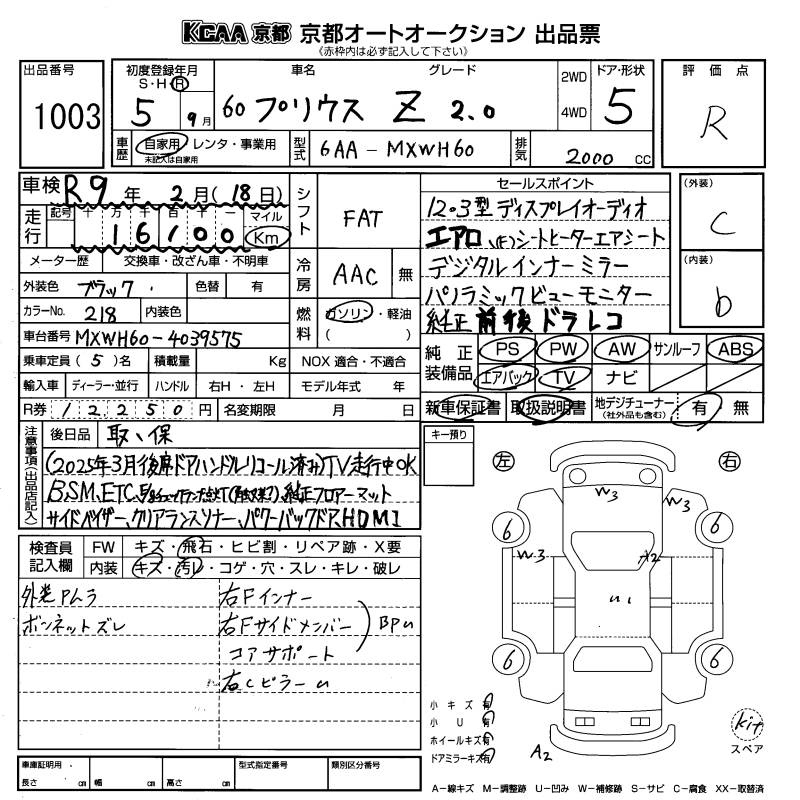 KCAA 京都 京都オートオークション 出品票
《赤枠内は必ず記入して下さい》
出品番号
1003
初度登録年月
S・H・R
5 9月
車名 グレード
60 プリウス Z 2.0
2WD
4WD
ドア・形状
5
評価点
R
車歴
自家用・レンタ・事業用
未記入は自家用
型式
6AA-MXWH60
排気
2000 cc
車検 R9年 2月(18日)
走行
記号 十 万 千 百 十 一 マイル
16100 Km
メーター歴 交換車・改ざん車・不明車
外装色 ブラック
色替 有
カラーNo. 218
内装色
車台番号 MXWH60-4039575
乗車定員(5)名
積載量 Kg
輸入車 ディーラー・並行 ハンドル 右H・左H
R券 12250円
名変期限 月 日
シフト
FAT
冷房
AAC 無
燃料
ガソリン・軽油
( )
NOX 適合・不適合
モデル年式 年
セールスポイント
12.3型ディスプレイオーディオ
エアロ、(F)シートヒーターエアシート
デジタルインナーミラー
パノラミックビューモニター
純正前後ドラレコ
(外装)
C
(内装)
b
純正装備品
PS PW AW サンルーフ ABS
エアバック TV ナビ
新車保証書 取扱説明書
地デジチューナー
(社外品も含む)
有・無
注意事項(出品店記入)
後日品 取、保
(2025年3月後席ドアハンドルリコール済み)TV走行中OK
B.S.M、ETC、
純正フロアーマット
サイドバイザー、クリアランスソナー、パワーバックドア、HDMI
検査員記入欄
FW キズ・飛石・ヒビ割・リペア跡・X要
内装 キズ・汚レ・コゲ・穴・スレ・キレ・破レ
外装PMラ
ボンネットズレ
右Fインナー
右Fサイドメンバー
コアサポート
BPu
右Cピラーu
キー預り
左
右
W3
W3
6
6
W3
A2
u1
6
6
A2
小キズ 有
小U 有
ホイールキズ有
ドアミラーキズ有
kit
スペア
車庫証明用
長さ cm 幅 cm 高さ cm
型式指定番号
類別区分番号
A-線キズ M-調整跡 U-凹み W-補修跡 S-サビ C-腐食 XX-取替済